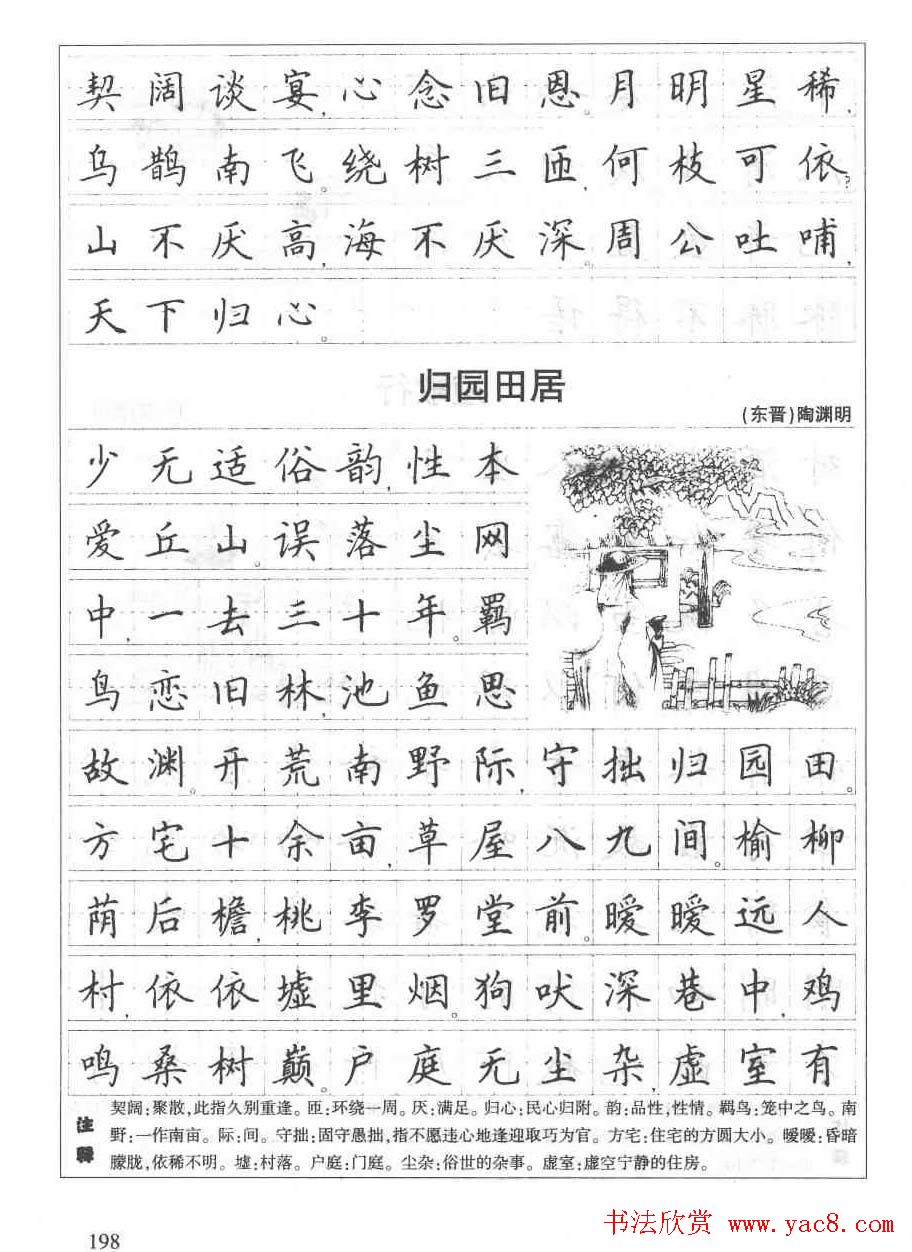 契阔谈宴,心念旧恩。月明星稀,
乌鹊南飞。绕树三匝,何枝可依?
山不厌高,海不厌深。周公吐哺,
天下归心。
归园田居
(东晋)陶渊明
少无适俗韵,性本
爱丘山。误落尘网
中,一去三十年。羁
鸟恋旧林,池鱼思
故渊。开荒南野际,守拙归园田。
方宅十余亩,草屋八九间。榆柳
荫后檐,桃李罗堂前。暧暧远人
村,依依墟里烟。狗吠深巷中,鸡
鸣桑树巅。户庭无尘杂,虚室有
注释
契阔:聚散,此指久别重逢。匝:环绕一周。厌:满足。归心:民心归附。韵:品性,性情。羁鸟:笼中之鸟。南
野:一作南亩。际:间。守拙:固守愚拙,指不愿违心地逢迎取巧为官。方宅:住宅的方圆大小。暧暧:昏暗
朦胧,依稀不明。墟:村落。户庭:门庭。尘杂:俗世的杂事。虚室:虚空宁静的住房。
198
书法欣赏 www.yac8.com